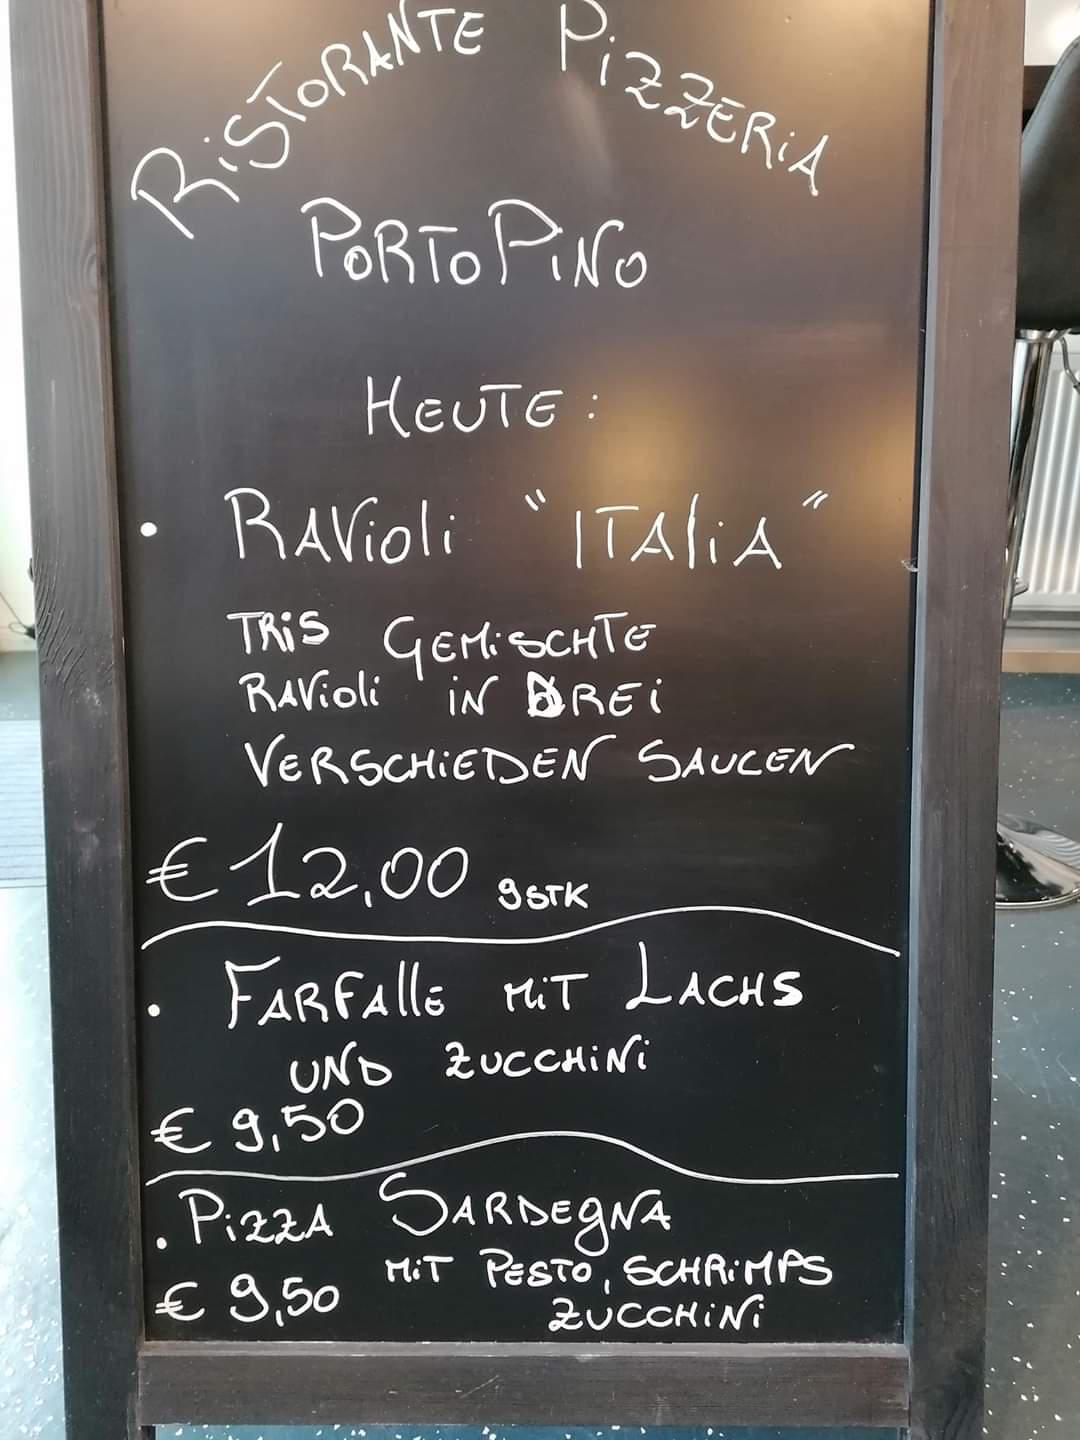 RiSTORANTE PiZZERiA
PORTOPiNO
HEUTE:
• RAVioli "ITAliA"
TRiS GEMiSCHTE
RAVioli iN DREi
VERSCHiEDEN SAUCEN
€ 12,00 9STK
• FARFAllE MiT LACHS
UND ZUCCHiNi
€ 9,50
• PiZZA SARDEgNA
MiT PESTO, SCHRiMPS
€ 9,50 ZUCCHiNi